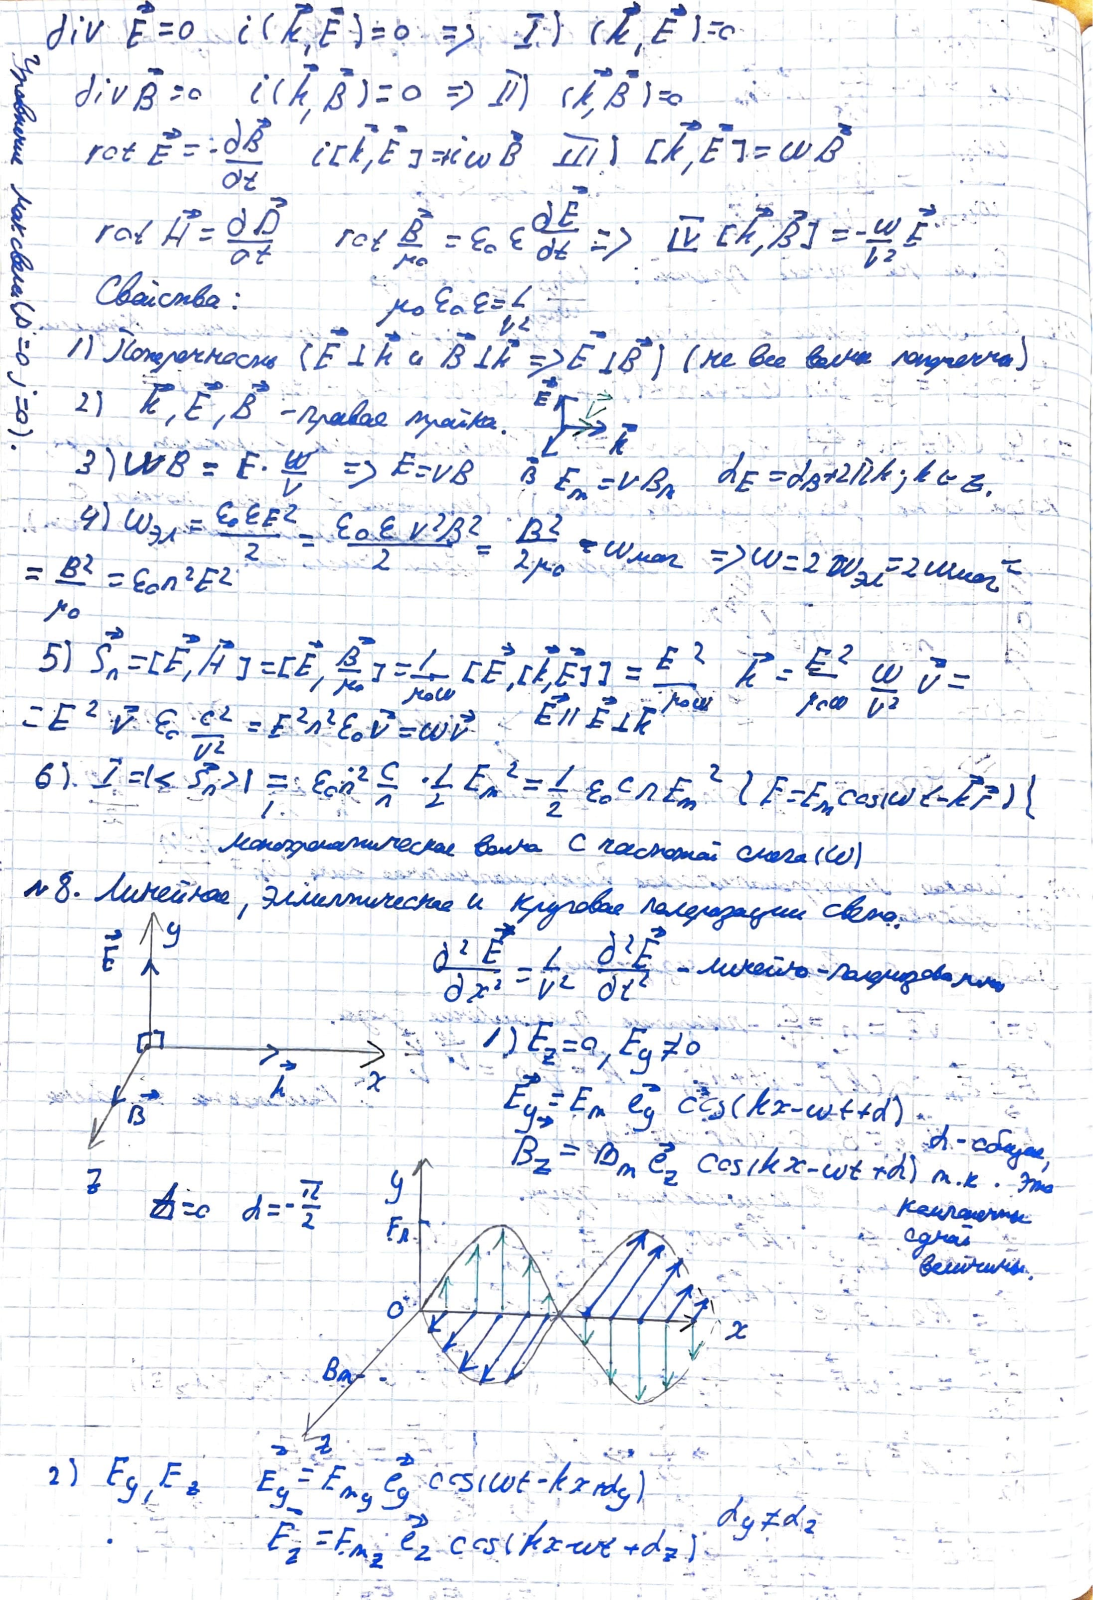 Уравнение Максвелла (ρ=0 j=0).
div E⃗=0 i(k⃗,E⃗)=0 => I) (k⃗,E⃗)=0
div B⃗=0 i(k⃗,B⃗)=0 => II) (k⃗,B⃗)=0
rot E⃗=-∂B⃗/∂t i[k⃗,E⃗]=+iωB⃗ III) [k⃗,E⃗]=ωB⃗
rot H⃗=∂D⃗/∂t rot B⃗/μ₀=ε₀ε ∂E⃗/∂t => IV [k⃗,B⃗]=-ω/v² E⃗
Свойства: μ₀ε₀ε=1/v²
1) Поперечность (E⃗⊥k⃗ и B⃗⊥k⃗ => E⃗⊥B⃗) (не все волны поперечны)
2) k⃗, E⃗, B⃗ - правая тройка. E⃗ v⃗ k⃗ B⃗
3) ωB = E·ω/v => E=vB Eₘ=vBₘ α_E=α_B+2πk; k∈z.
4) ωэл=ε₀εE²/2=ε₀εv²B²/2=B²/2μ₀=ωмаг => ω=2ωэл=2ωмаг=
=B²/μ₀=ε₀n²E²
5) S⃗ₙ=[E⃗,H⃗]=[E⃗,B⃗/μ₀]=1/μ₀ω [E⃗,[k⃗,E⃗]]=E²/μ₀ω k⃗=E²/μ₀ω ω/v² v⃗=
=E² v⃗ ε₀ c²/v²=E²n²ε₀v⃗=ωv⃗ E⃗∥E⃗⊥k⃗
6). I=|<S⃗ₙ>|=ε₀n² c/n·1/2 Eₘ²=1/2 ε₀cnEₘ² {E=Eₘcos(ωt-k⃗r⃗)}
монохроматическая волна с частотой (ω)
№8. Линейное, эллиптическое и круговое поляризации света.
y E⃗ k⃗ x B⃗ z
∂²E⃗/∂x²=1/v² ∂²E⃗/∂t² - линейно-поляризована
1) E_z=0, E_y≠0
E⃗_y=Eₘ e⃗_y cos(kx-ωt+α)
B⃗_z=Bₘ e⃗_z cos(kx-ωt+α)
α-общая,
т.к. это
компоненты
одной
величины.
t=0 α=-π/2
y Eₘ 0 x Bₘ z
2) E_y, E_z E⃗_y=Eₘ_y e⃗_y cos(ωt-kx+α_y)
E⃗_z=Eₘ_z e⃗_z cos(kx-ωt+α_z) α_y≠α_z